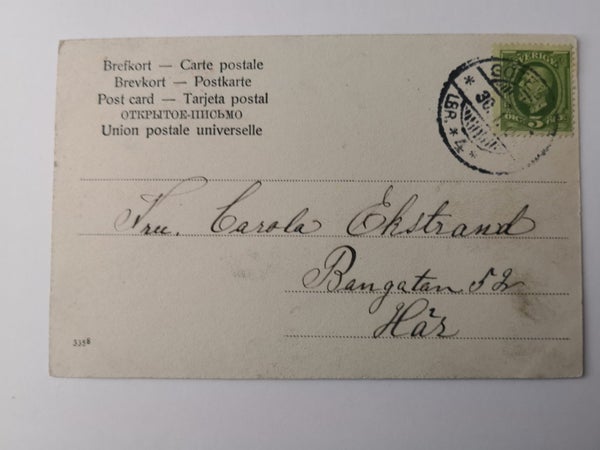 Brefkort — Carte postale
Brevkort — Postkarte
Post card — Tarjeta postal
ОТКРЫТОЕ-ПИСЬМО
Union postale universelle
SVERIGE
5
LBR. * 4 *
Fru. Carola Ekstrand
Bangatan 52
Här
3358